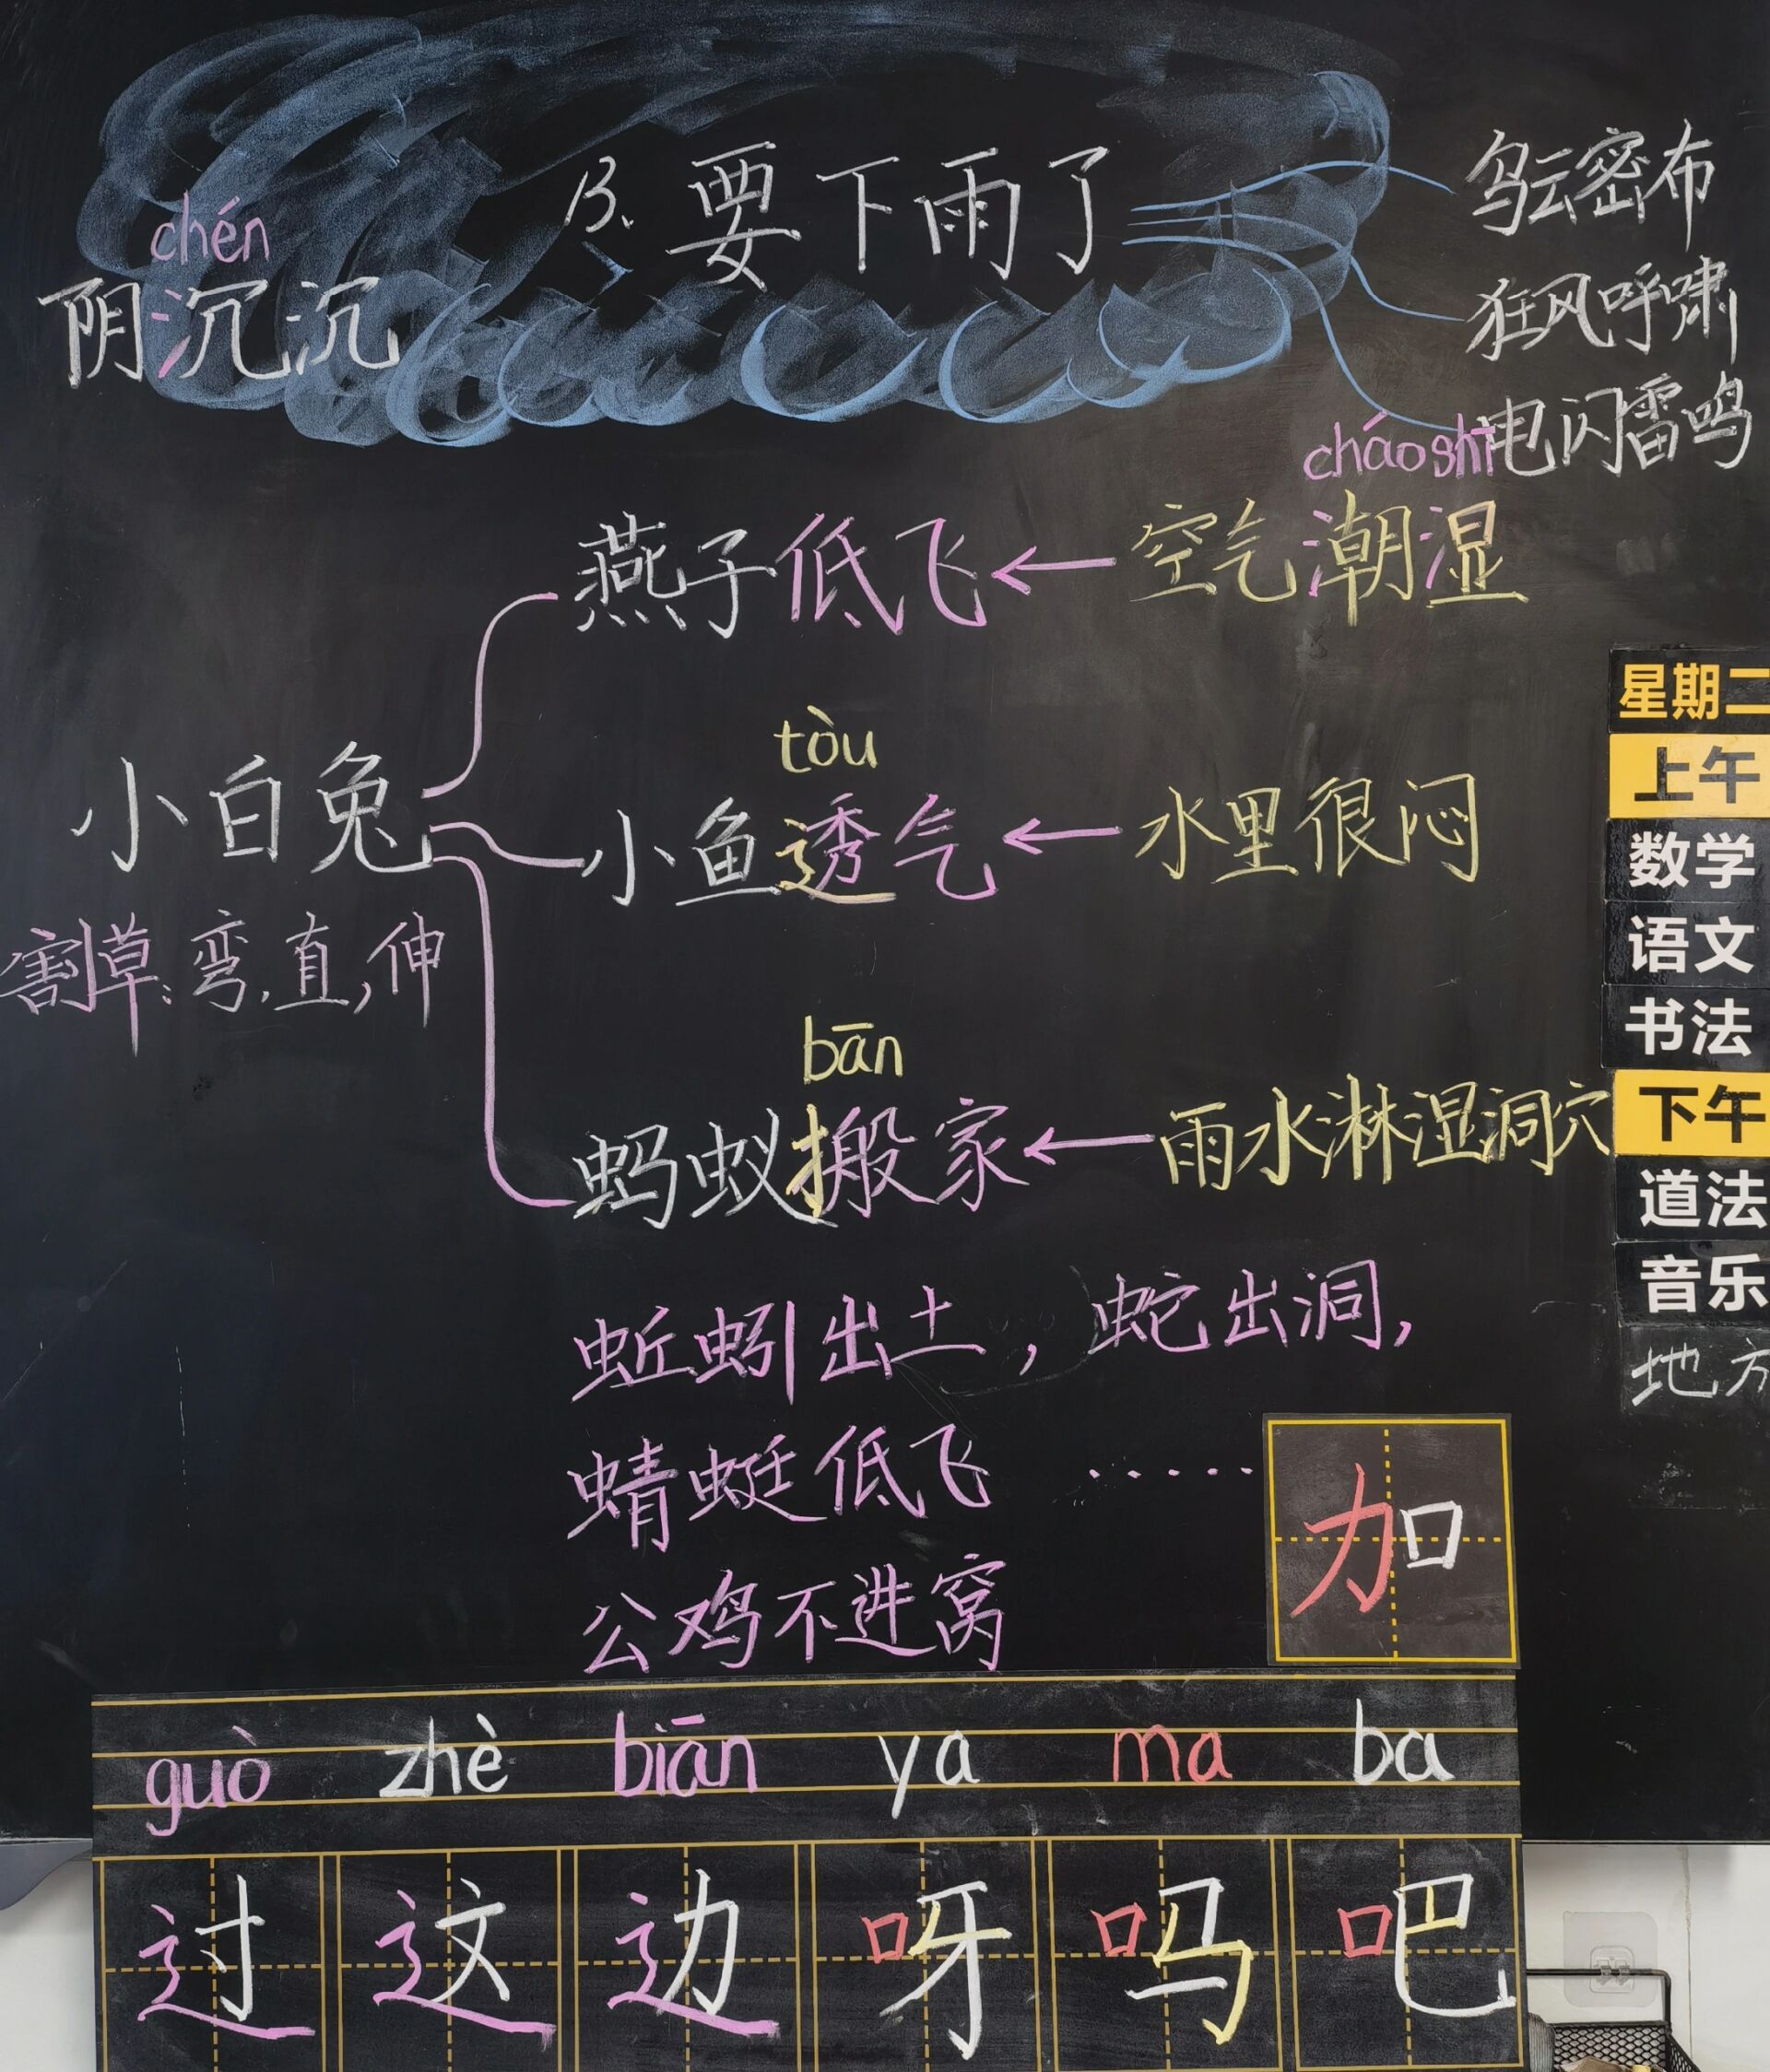 13. 要下雨了
乌云密布
狂风呼啸
电闪雷鸣
chén
阴沉沉
cháo shī
燕子低飞←空气潮湿
tòu
小白兔
小鱼透气←水里很闷
割草:弯,直,伸
bān
蚂蚁搬家←雨水淋湿洞穴
蚯蚓出土,蛇出洞,
蜻蜓低飞 ......
公鸡不进窝
加
guò zhè biān ya ma ba
过 这 边 呀 吗 吧
星期二
上午
数学
语文
书法
下午
道法
音乐
地方